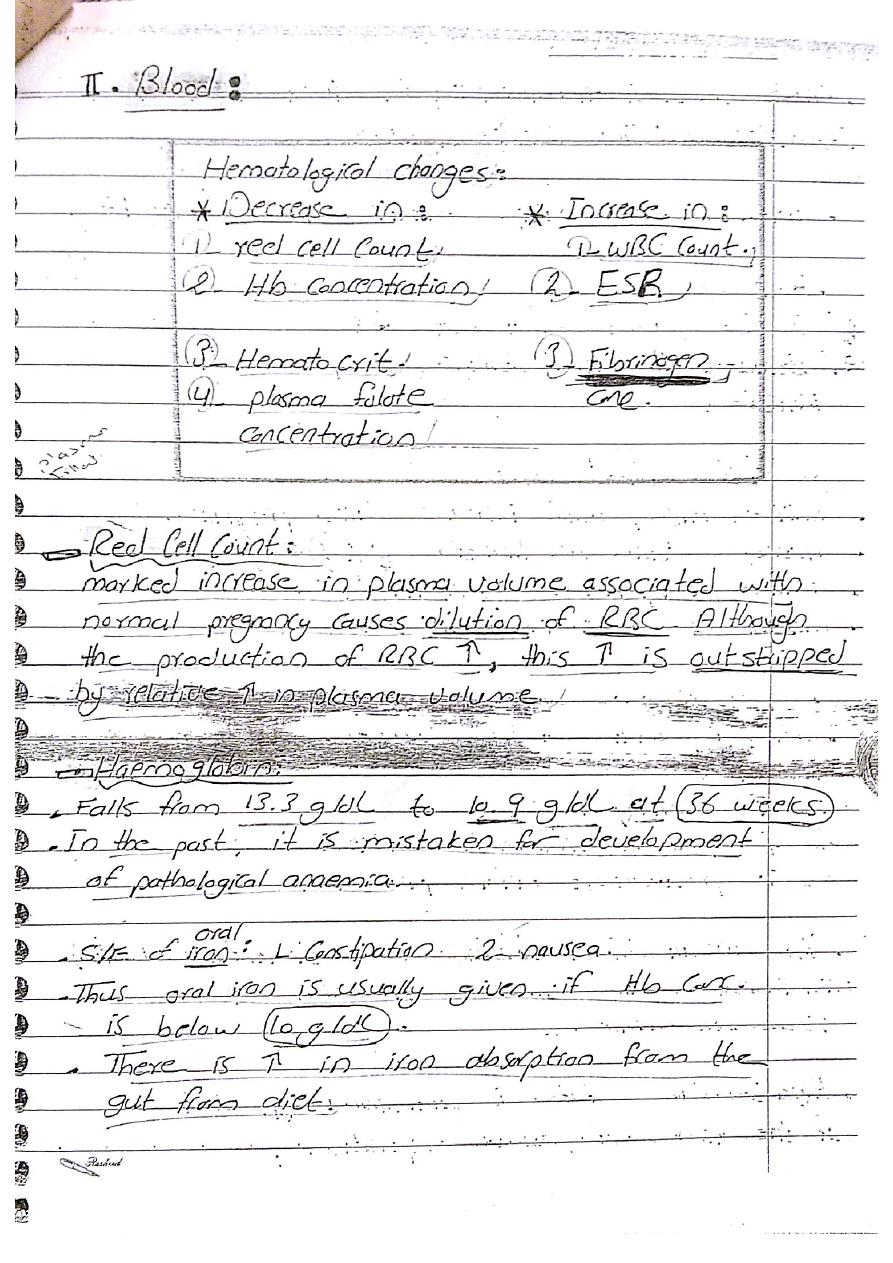 II. Blood:
Hematological changes:
* Decrease in: * Increase in:
1- red cell Count. 1- WBC Count.
2- Hb concentration 2- ESR
3- Hematocrit 3- Fibrinogen
4- plasma folate conc.
concentration
Red Cell Count:
marked increase in plasma volume associated with
normal pregnancy causes dilution of RBC Although
the production of RBC ↑, this ↑ is outstripped
by relative ↑ in plasma volume.
Haemoglobin:
. Falls from 13.3 g/dl to 10.9 g/dl at 36 weeks.
. In the past, it is mistaken for development
of pathological anaemia.
oral
. S/E of iron: 1- Constipation 2- nausea.
. Thus oral iron is usually given if Hb Conc.
is below 10 g/dl.
. There is ↑ in iron absorption from the
gut from diet.